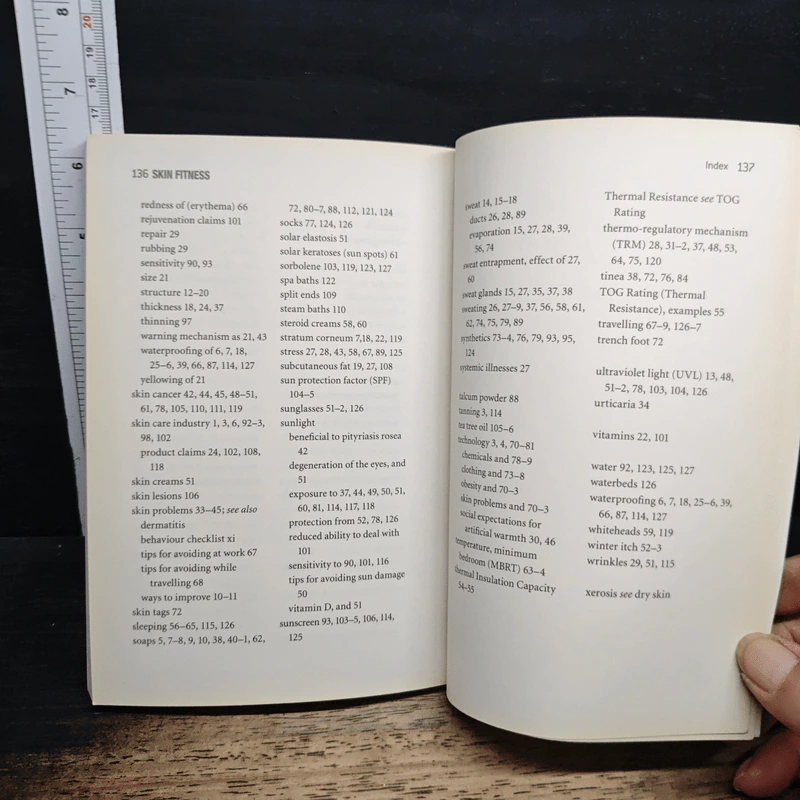 8
20
19
7
18
17
6
136 SKIN FITNESS
redness of (erythema) 66
rejuvenation claims 101
repair 29
rubbing 29
sensitivity 90, 93
size 21
structure 12–20
thickness 18, 24, 37
thinning 97
warning mechanism as 21, 43
waterproofing of 6, 7, 18,
25–6, 39, 66, 87, 114, 127
yellowing of 21
skin cancer 42, 44, 45, 48–51,
61, 78, 105, 110, 111, 119
skin care industry 1, 3, 6, 92–3,
98, 102
product claims 24, 102, 108,
118
skin creams 51
skin lesions 106
skin problems 33–45; see also
dermatitis
behaviour checklist xi
tips for avoiding at work 67
tips for avoiding while
travelling 68
ways to improve 10–11
skin tags 72
sleeping 56–65, 115, 126
soaps 5, 7–8, 9, 10, 38, 40–1, 62,
72, 80–7, 88, 112, 121, 124
socks 77, 124, 126
solar elastosis 51
solar keratoses (sun spots) 61
sorbolene 103, 119, 123, 127
spa baths 122
split ends 109
steam baths 110
steroid creams 58, 60
stratum corneum 7,18, 22, 119
stress 27, 28, 43, 58, 67, 89, 125
subcutaneous fat 19, 27, 108
sun protection factor (SPF)
104–5
sunglasses 51–2, 126
sunlight
beneficial to pityriasis rosea
42
degeneration of the eyes, and
51
exposure to 37, 44, 49, 50, 51,
60, 81, 114, 117, 118
protection from 52, 78, 126
reduced ability to deal with
101
sensitivity to 90, 101, 116
tips for avoiding sun damage
50
vitamin D, and 51
sunscreen 93, 103–5, 106, 114,
125
Index 137
sweat 14, 15–18
ducts 26, 28, 89
evaporation 15, 27, 28, 39,
56, 74
sweat entrapment, effect of 27,
60
sweat glands 15, 27, 35, 37, 38
sweating 26, 27–9, 37, 56, 58, 61,
62, 74, 75, 79, 89
synthetics 73–4, 76, 79, 93, 95,
124
systemic illnesses 27
talcum powder 88
tanning 3, 114
tea tree oil 105–6
technology 3, 4, 70–81
chemicals and 78–9
clothing and 73–8
obesity and 70–3
skin problems and 70–3
social expectations for
artificial warmth 30, 46
temperature, minimum
bedroom (MBRT) 63–4
thermal Insulation Capacity
54–55
Thermal Resistance see TOG
Rating
thermo-regulatory mechanism
(TRM) 28, 31–2, 37, 48, 53,
64, 75, 120
tinea 38, 72, 76, 84
TOG Rating (Thermal
Resistance), examples 55
travelling 67–9, 126–7
trench foot 72
ultraviolet light (UVL) 13, 48,
51–2, 78, 103, 104, 126
urticaria 34
vitamins 22, 101
water 92, 123, 125, 127
waterbeds 126
waterproofing 6, 7, 18, 25–6, 39,
66, 87, 114, 127
whiteheads 59, 119
winter itch 52–3
wrinkles 29, 51, 115
xerosis see dry skin